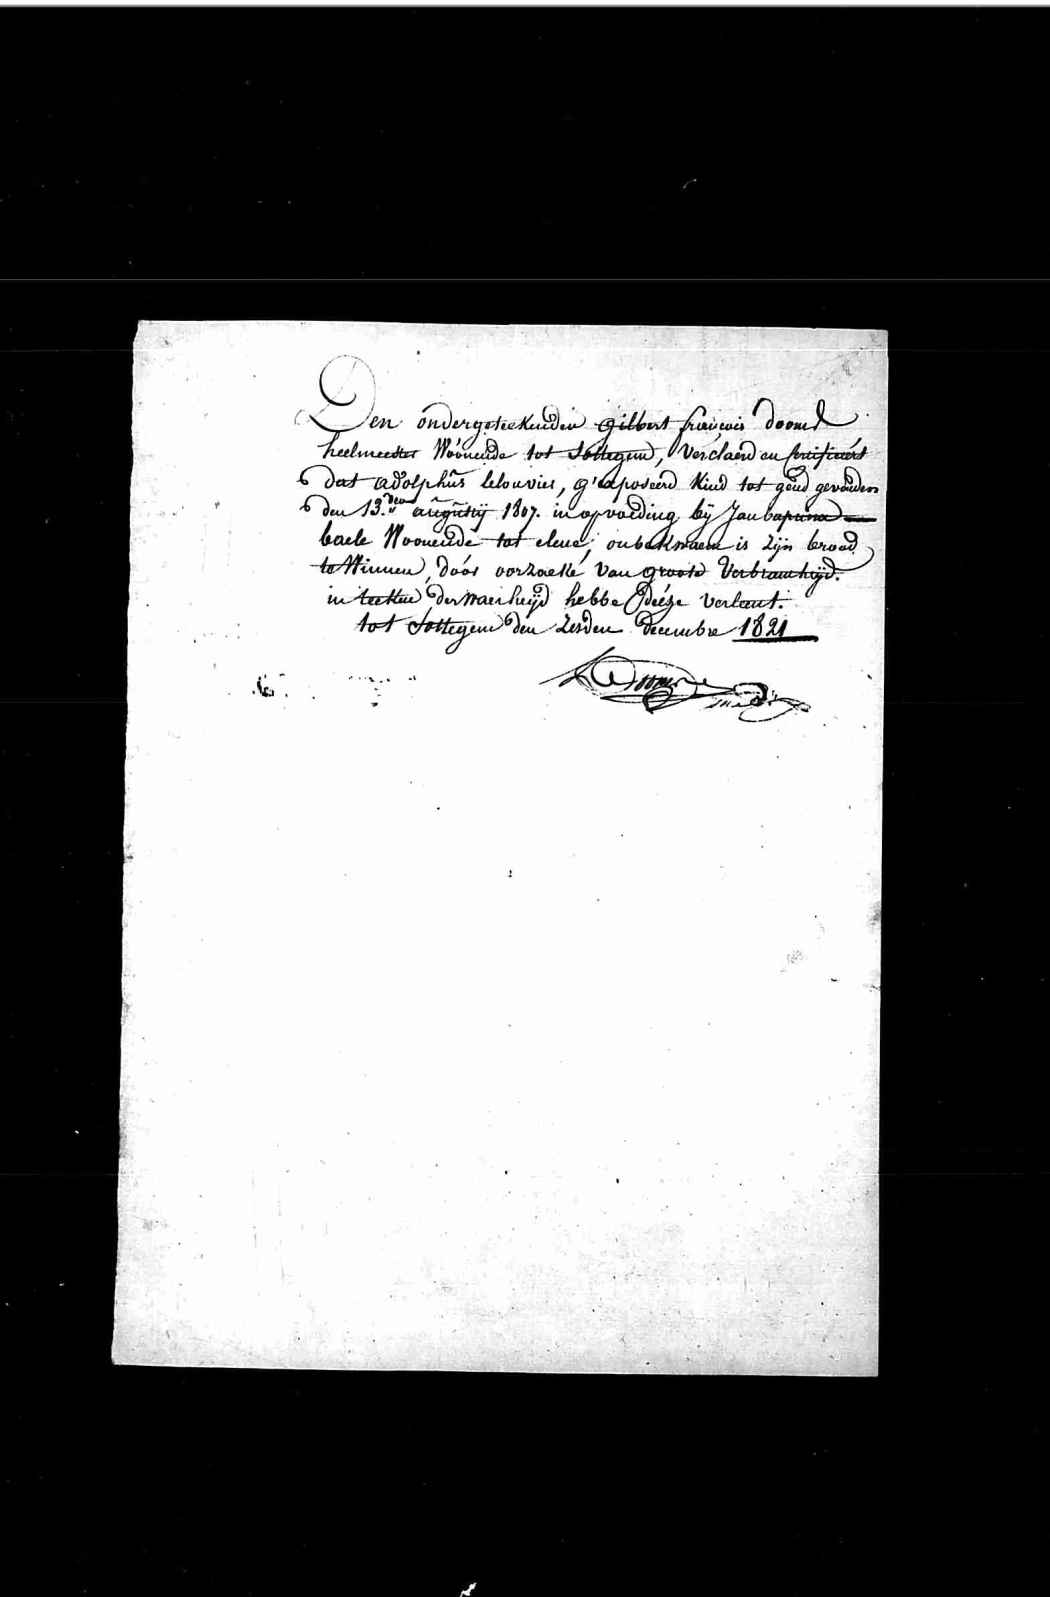 Den ondergeteekenden gilbert françois doomd
heelmeester Woonende tot Sottegem, verclaerd en certificért
dat adolphus lelouvier, g'exposeerd Kind tot gend gevonden
den 13.den augustij 1807. in opvoeding bij Jan baptiste
baele Woonende tot elene, onbekwaem is zijn brood
te Winnen, door oorzaeke van groote Verbrandheijd.
in teeken der Waerheijd hebbe deéze verleent.
tot Sottegem den Zesden decembre 1821